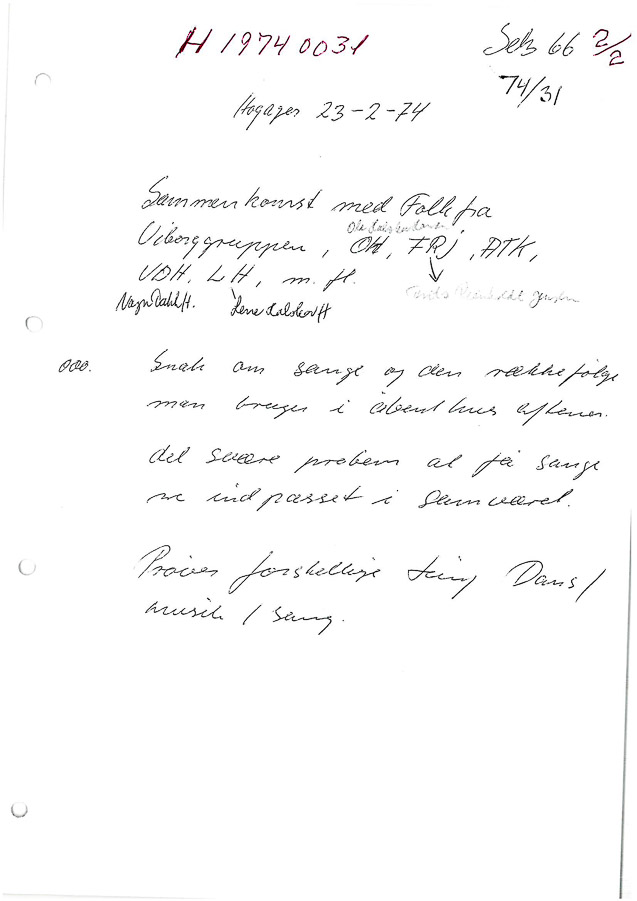 H 19740031
Seb 66 2/2
74/31
Hogager 23-2-74
Sammenkomst med Folk fra
Viborggruppen, OH, FRJ, ATK,
VDH, LH, m. fl.
Vagn Dahl H. Lene Halskov H
Jensen
000. Snak om sange og den rækkefølge
man bruger i åbent hus aftener.
det svære probem at få sange
ne indpasset i samværet.
Prøver forskellige ting Dans/
musik / sang.